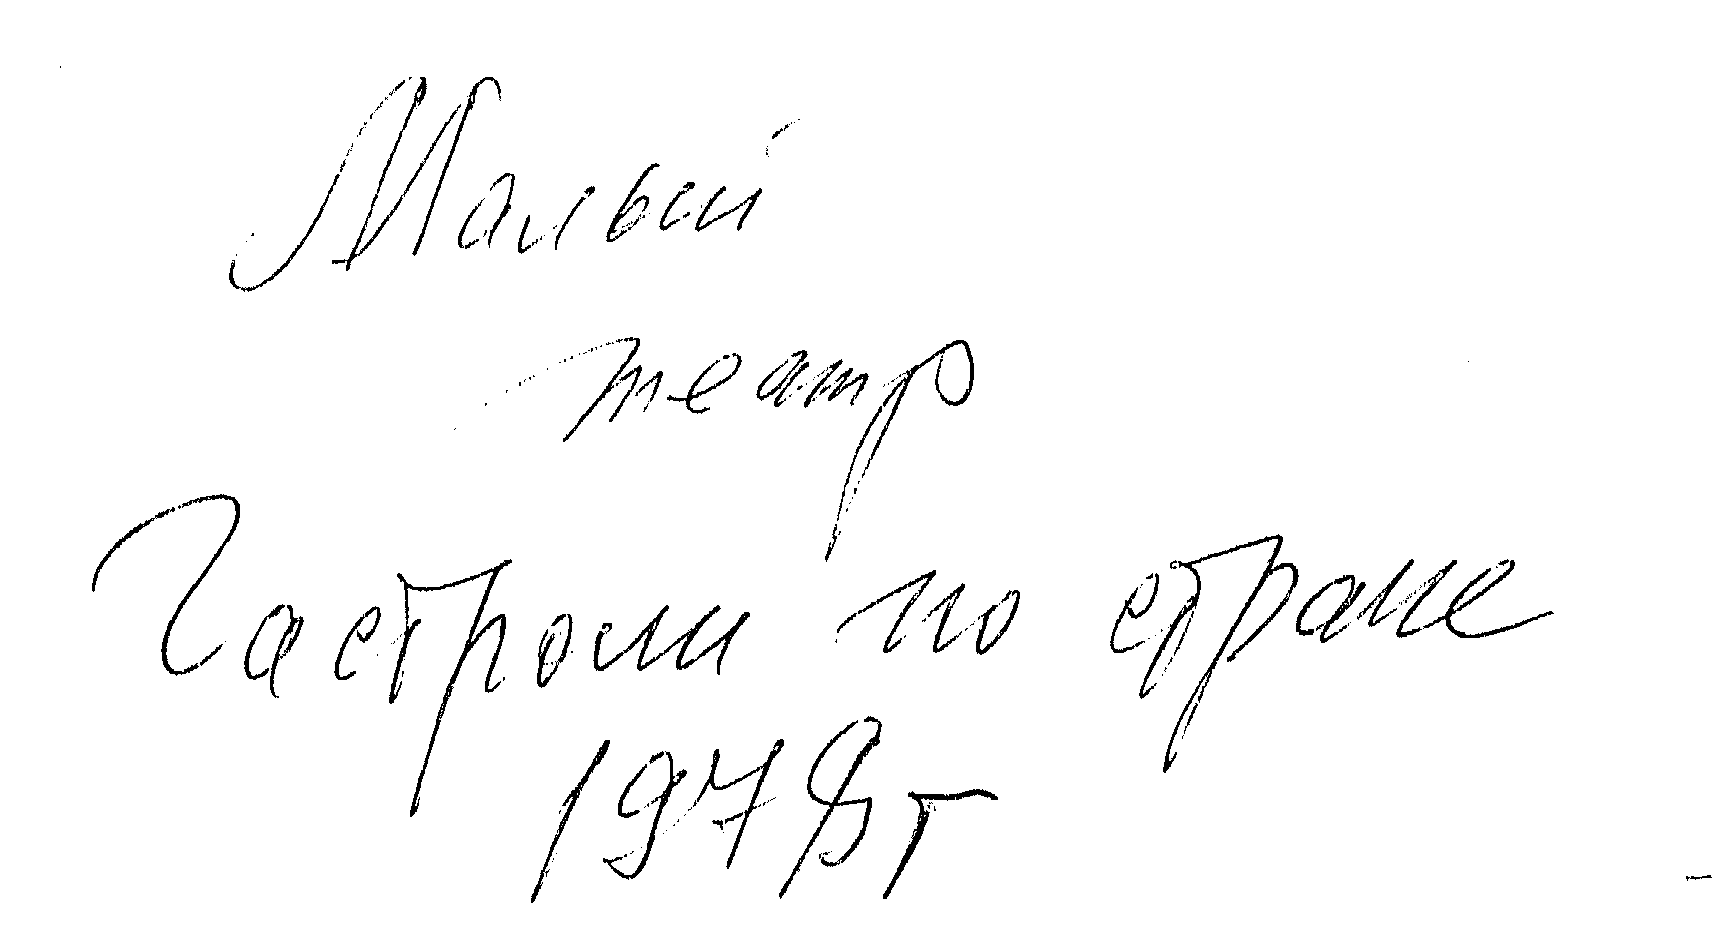 Малый
театр
Гастроли по стране
1978г